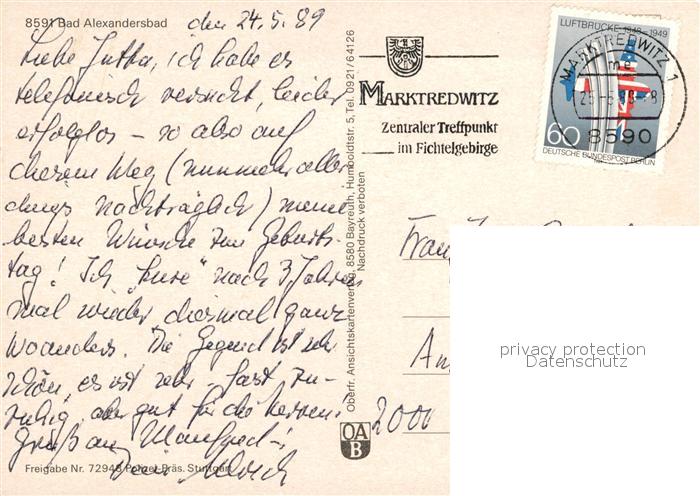 8591 Bad Alexandersbad
den 24.5.89
Liebe Jutta, ich habe es
telefonisch versucht, leider
erfolglos – so also auf
diesem Weg (nunmehr aller-
dings nachträglich) meine
besten Wünsche zum Geburts-
tag! Ich "kure" nach 3 Jahren
mal wieder diesmal ganz
woanders. Die Gegend ist sehr
schön, es ist sehr - fast zu-
ruhig, aber gut für die Nerven!
Gruß an Manfred –
Dein Ulrich
Freigabe Nr. 72948 Polizei-Präs. Stuttgart
Oberfr. Ansichtskartenverlag, 8580 Bayreuth, Humboldtstr. 5, Tel. 0921/64126
Nachdruck verboten
OA
B
MARKTREDWITZ
Zentraler Treffpunkt
im Fichtelgebirge
LUFTBRÜCKE 1948-1949
60
DEUTSCHE BUNDESPOST BERLIN
MARKTREDWITZ 1
8590
Frau
2000
privacy protection
Datenschutz